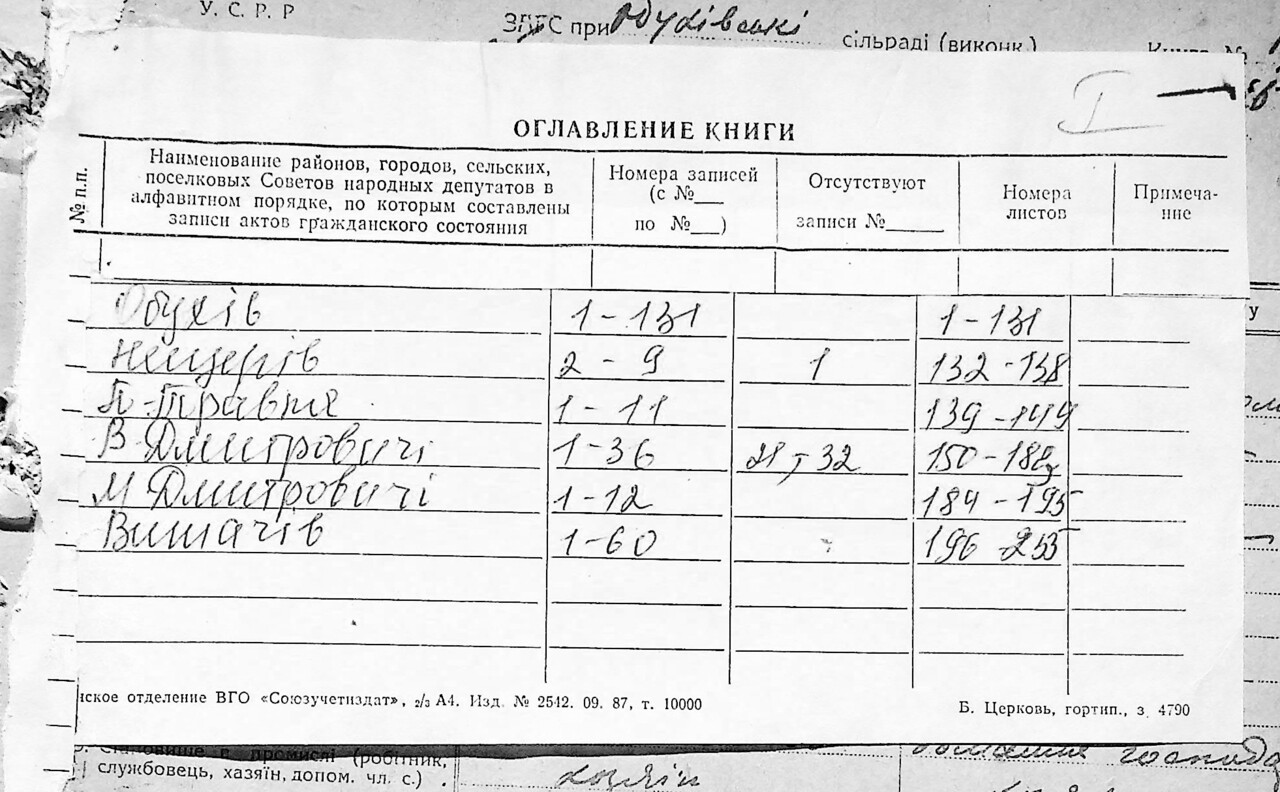 У. С. Р. Р
ЗАГС при Обухівській сільраді (виконк.)
I
ОГЛАВЛЕНИЕ КНИГИ
№ п.п.
Наименование районов, городов, сельских,
поселковых Советов народных депутатов в
алфавитном порядке, по которым составлены
записи актов гражданского состояния
Номера записей
(с №___
по №___)
Отсутствуют
записи №______
Номера
листов
Примеча-
ние
Обухів 1-131 1-131
Нещерів 2-9 1 132-138
П-Травня 1-11 139-149
В Дмитровичі 1-36 32 150-
М Дмитровичі 1-12 184-195
Витачів 1-60 196 255
ское отделение ВГО «Союзучетиздат», 2/3 А4. Изд. № 2542. 09. 87, т. 10000
Б. Церковь, гортип., з. 4790
Становище в промислі (робітник,
службовець, хазяїн, допом. чл. с.)